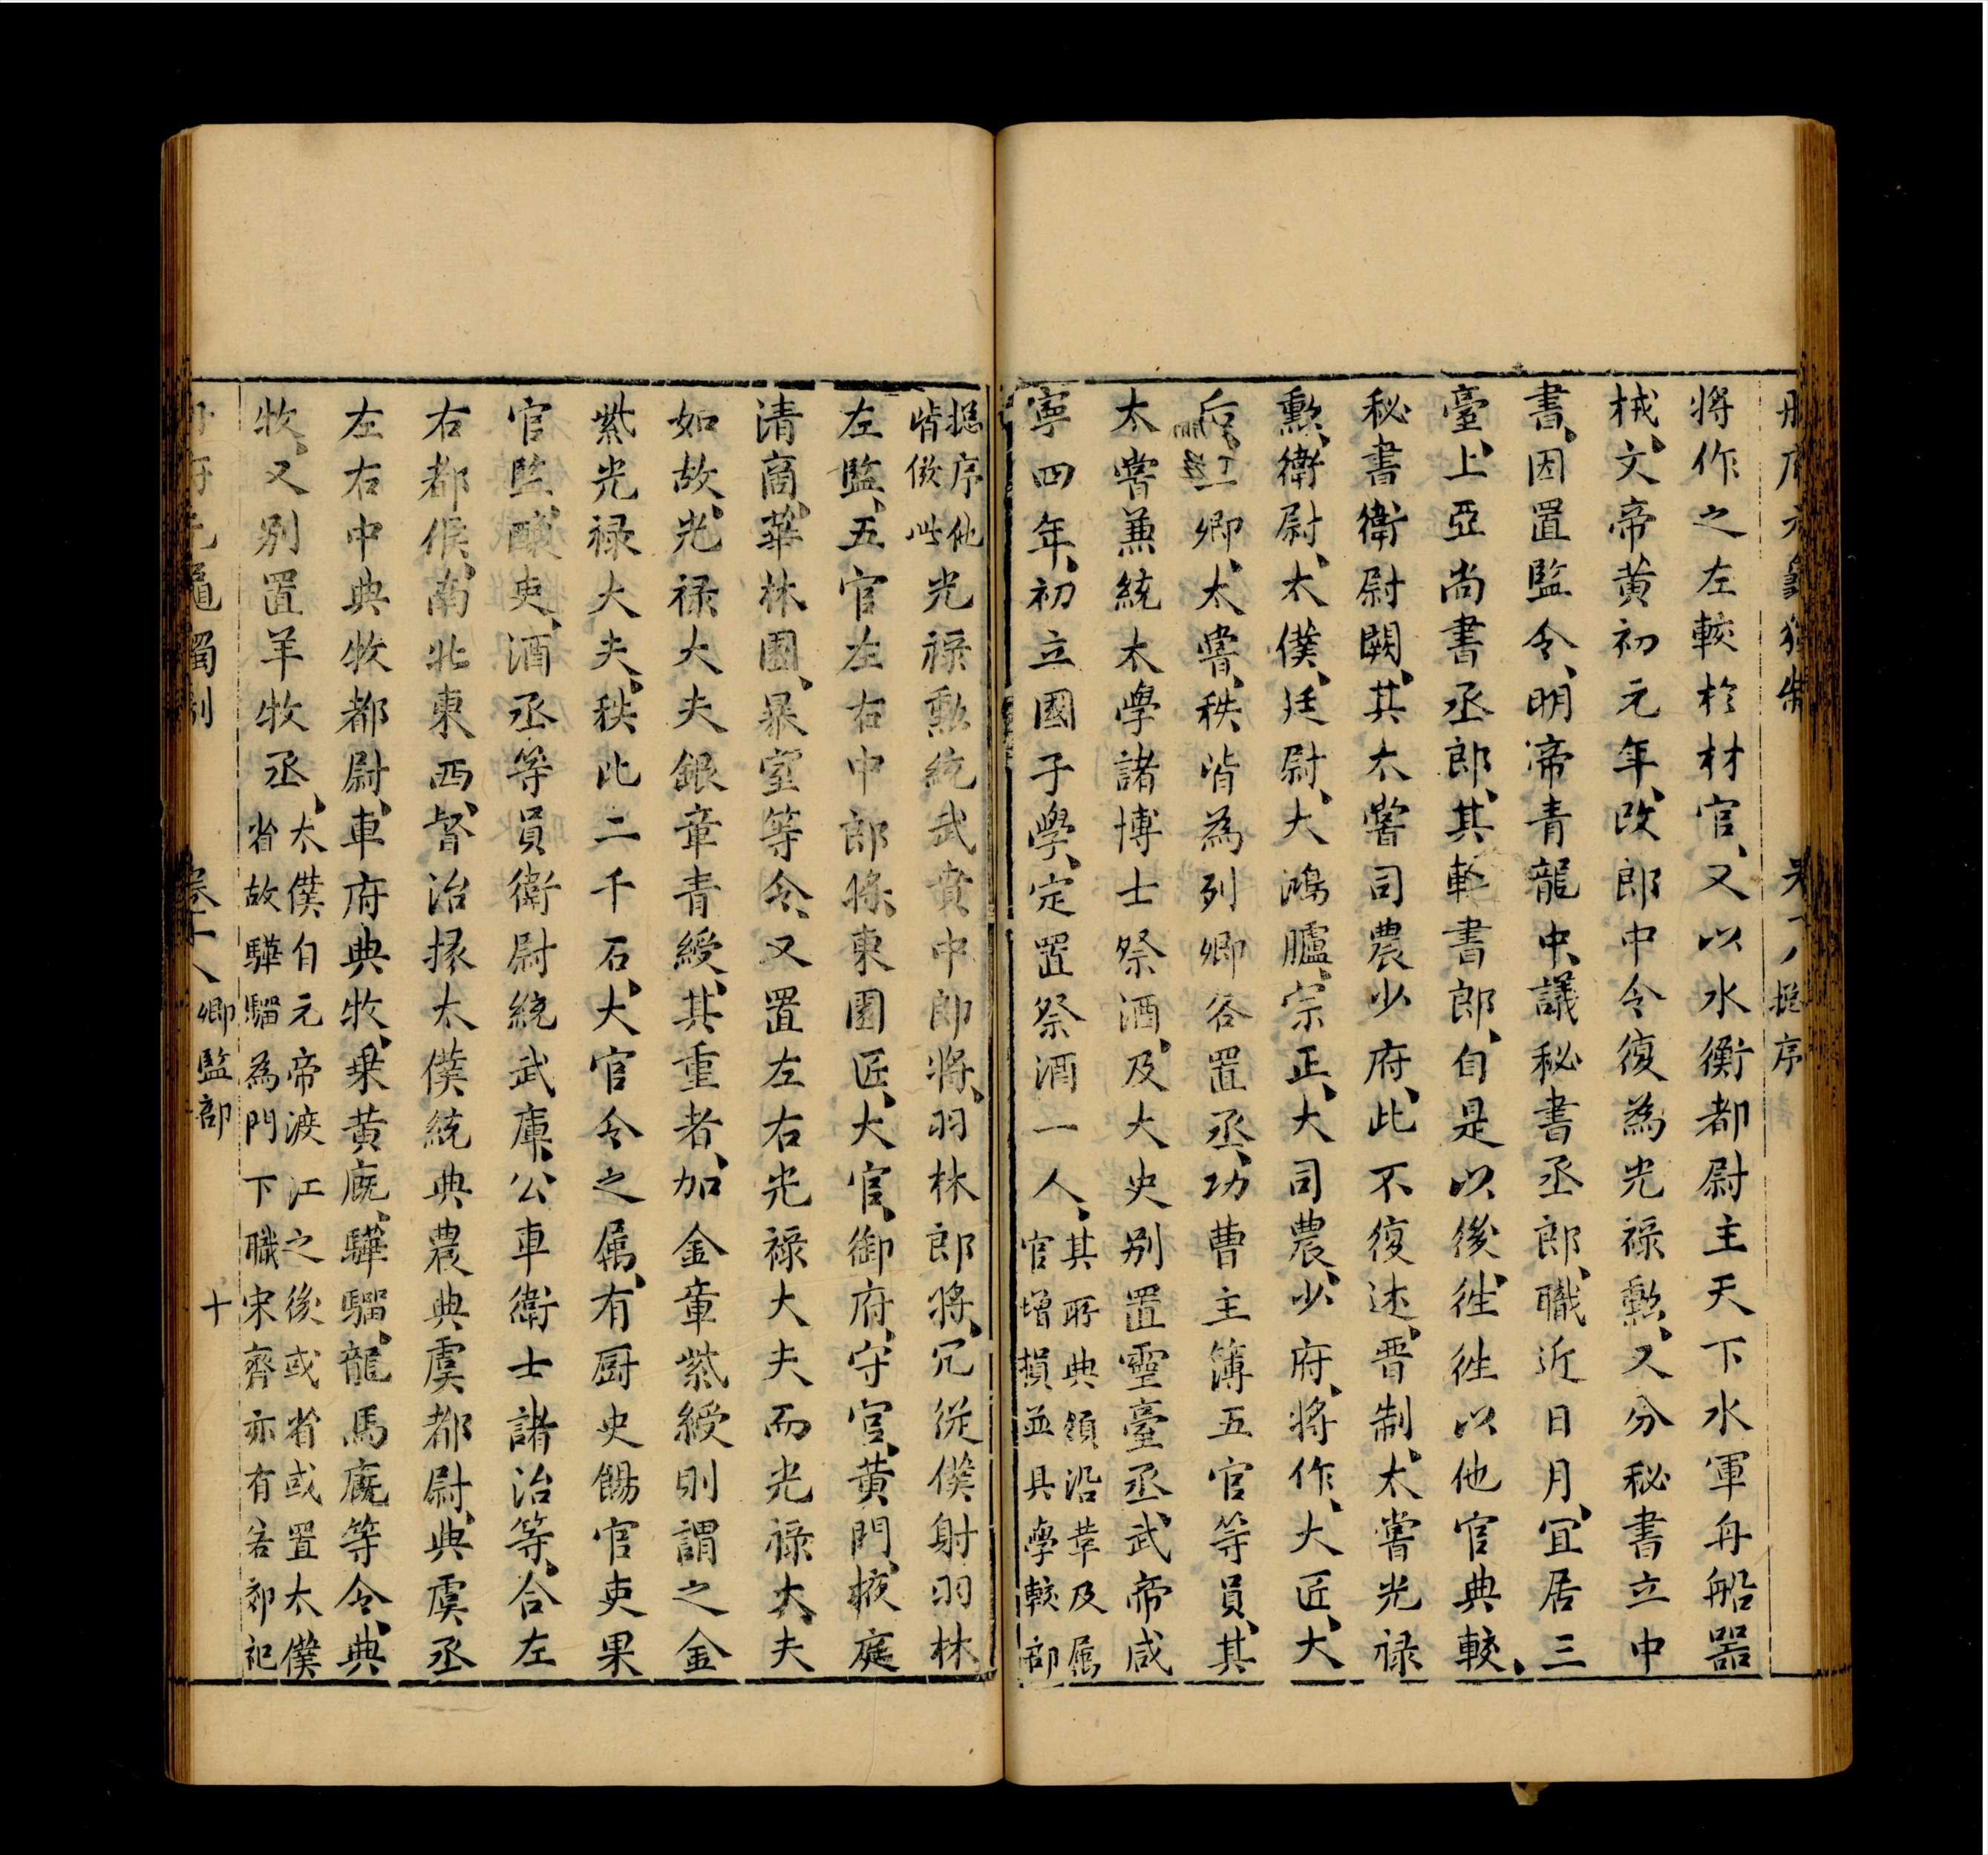 將作之左較於材官又以水衡都尉主天下水軍舟船器
械文帝黄初元年改郎中令復為光禄勲又分秘書立中
書因置監令明帝青龍中議秘書丞郎職近日月宜居三
臺上亞尚書丞郎其較書郎自是以後往往以他官典較
秘書衛尉闕其太嘗司農少府此不復述晋制太嘗光禄
勲衛尉太僕廷尉大鴻臚宗正大司農少府將作大匠大
后三卿太嘗秩皆為列卿各置丞功曹主簿五官等員其
太嘗兼統太學諸博士祭酒及大史別置靈臺丞武帝咸
寧四年初立國子學定置祭酒一人其所典領沿革及属
官增損並具學較部
總序他
皆倣此光禄勲統武賁中郎將羽林郎將冗從僕射羽林
左監五官左右中郎將東園匠大官御府守宫黄門掖庭
清商華林園暴室等令又置左右光禄大夫而光禄大夫
如故光禄大夫銀章青綬其重者加金章紫綬則謂之金
紫光禄大夫秩比二千石大官令之属有厨史餳官吏果
官監釀吏酒丞等員衛尉統武庫公車衛士諸冶等令左
右都候南北東西督冶掾太僕統典農典虞都尉典虞丞
左右中典牧都尉車府典牧乗黄廐驊騮龍馬廐等令典
牧又別置羊牧丞太僕自元帝渡江之後或省或置太僕
省故驊騮為門下職宋齊亦有若郊祀
卷十八 卿監部 十